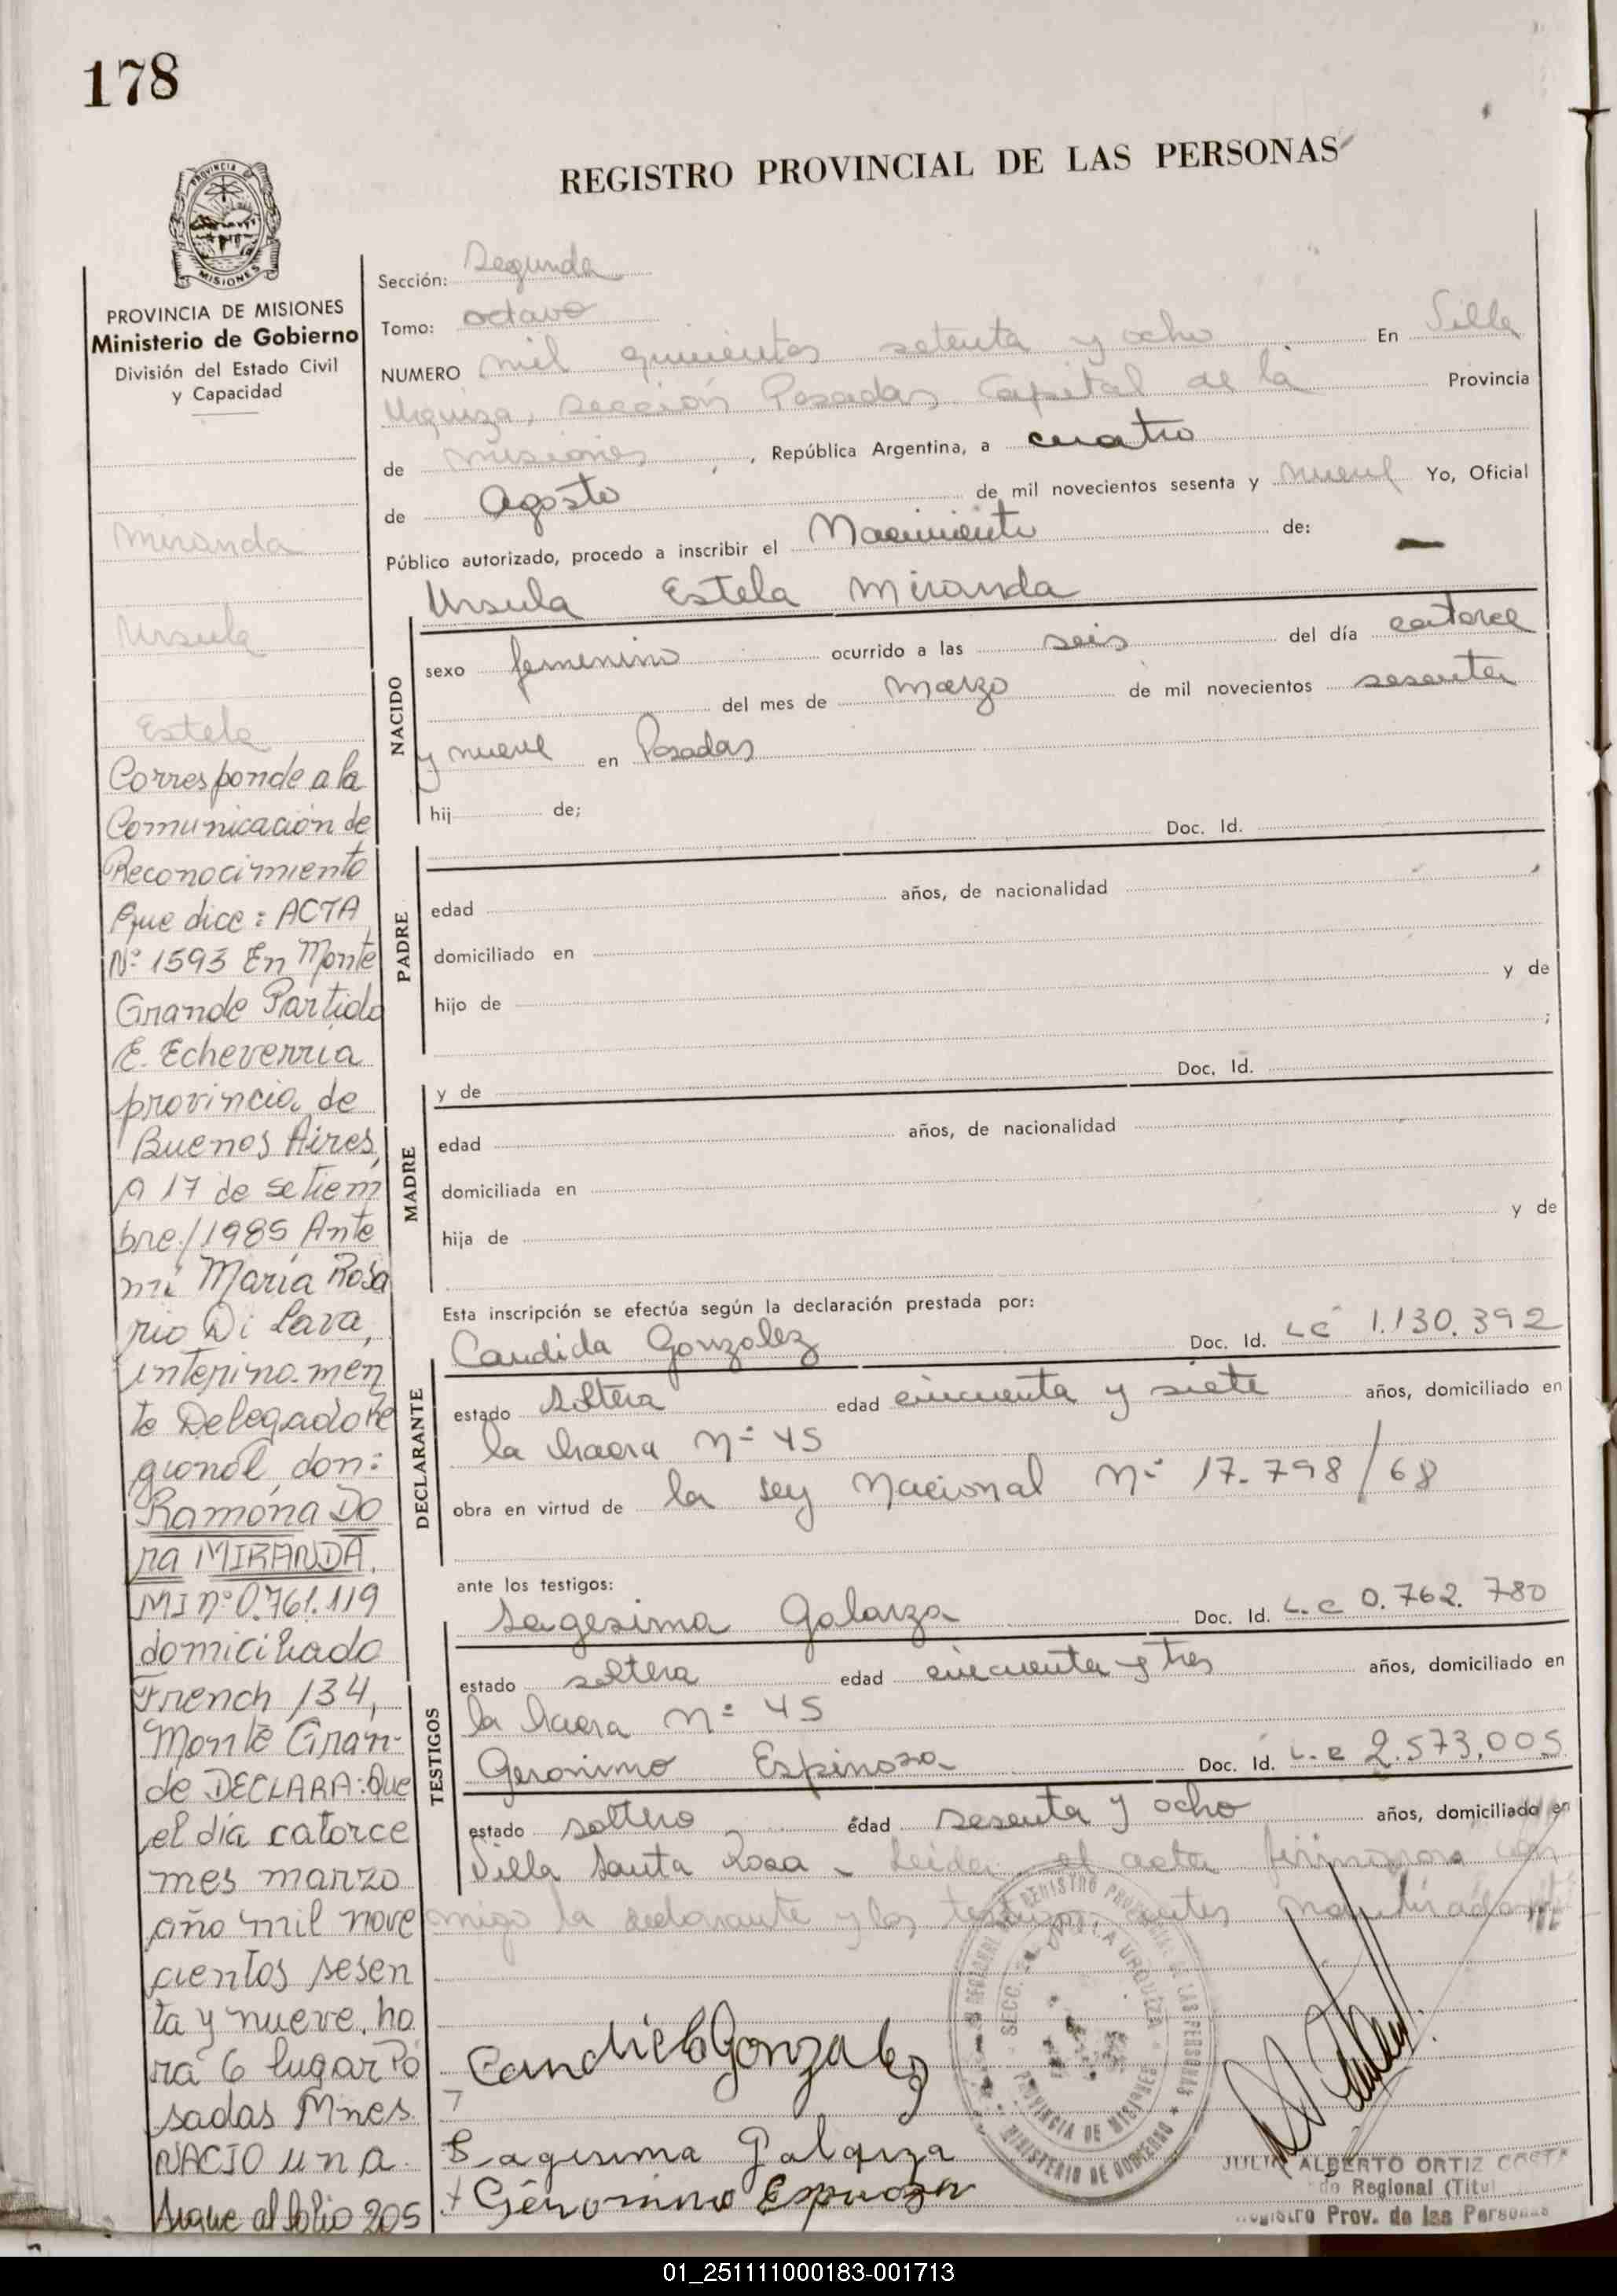 178
REGISTRO PROVINCIAL DE LAS PERSONAS
PROVINCIA
MISIONES
PROVINCIA DE MISIONES
Ministerio de Gobierno
División del Estado Civil
y Capacidad
Miranda
Ursula
Estela
Corresponde a la
Comunicación de
Reconocimiento
que dice: ACTA
Nº 1593 En Monte
Grande Partido
E. Echeverria
provincia de
Buenos Aires,
a 17 de setiem
bre/1985 Ante
mi Maria Rosa
rio Di Lava,
interinamen
te Delegado Re
gional, don:
Ramona Do
ra MIRANDA.
MI nº 0.761.119
domiciliado
French 134,
Monte Gran-
de DECLARA: Que
el día catorce
mes marzo
año mil nove
cientos sesen
ta y nueve, ho
ra 6 lugar Po
sadas Mnes.
NACIO una.
Sigue al folio 205
Sección: Segunda
Tomo: octavo
NUMERO mil quinientos setenta y ocho En Villa
Urquiza, sección Posadas Capital de la Provincia
de misiones, República Argentina, a cuatro
de Agosto de mil novecientos sesenta y nueve Yo, Oficial
Público autorizado, procedo a inscribir el Nacimiento de: —
Ursula Estela Miranda
NACIDO
sexo femenino ocurrido a las seis del día catorce
del mes de marzo de mil novecientos sesenta
y nueve en Posadas
hij de;
Doc. Id.
PADRE
edad años, de nacionalidad
domiciliado en
hijo de y de
;
y de Doc. Id.
MADRE
edad años, de nacionalidad
domiciliada en
hija de y de
Esta inscripción se efectúa según la declaración prestada por:
Candida Gonzalez Doc. Id. LC 1.130.392
DECLARANTE
estado soltera edad cincuenta y siete años, domiciliado en
la chacra nº 45
obra en virtud de la ley Nacional Nº 17.798/68
ante los testigos:
Sagesima Galarza Doc. Id. L.C 0.762.780
TESTIGOS
estado soltera edad cincuenta y tres años, domiciliado en
la chacra nº 45
Geronimo Espinoza Doc. Id. L.E 2.573.005
estado soltero edad sesenta y ocho años, domiciliado en
Villa Santa Rosa - Leida el acta firmaron con
migo la declarante y los testigos antes nombrados
Candida Gonzalez
Sagesima Galarza
+ Geronimo Espinoza
REGISTRO PROVINCIAL DE LAS PERSONAS
SECC. 2a VILLA URQUIZA
PROVINCIA DE MISIONES
MINISTERIO DE GOBIERNO
JULIO ALBERTO ORTIZ COSTA
do Regional (Titul
Registro Prov. de las Personas
01_251111000183-001713